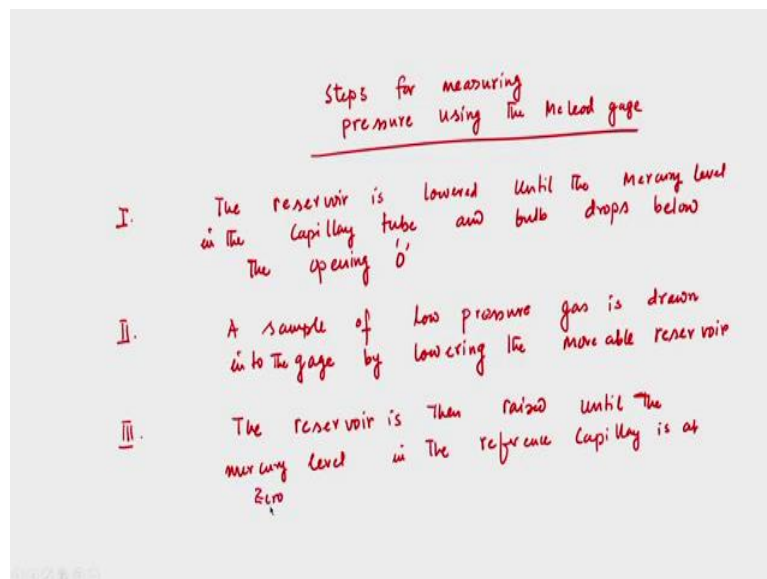 Steps for measuring
pressure using the McLeod gage
I. The reservoir is lowered until the Mercury level
in the Capillary tube and bulb drops below
the opening 'O'
II. A sample of low pressure gas is drawn
in to the gage by lowering the moveable reservoir
III. The reservoir is then raised until the
mercury level in the reference Capillary is at
Zero